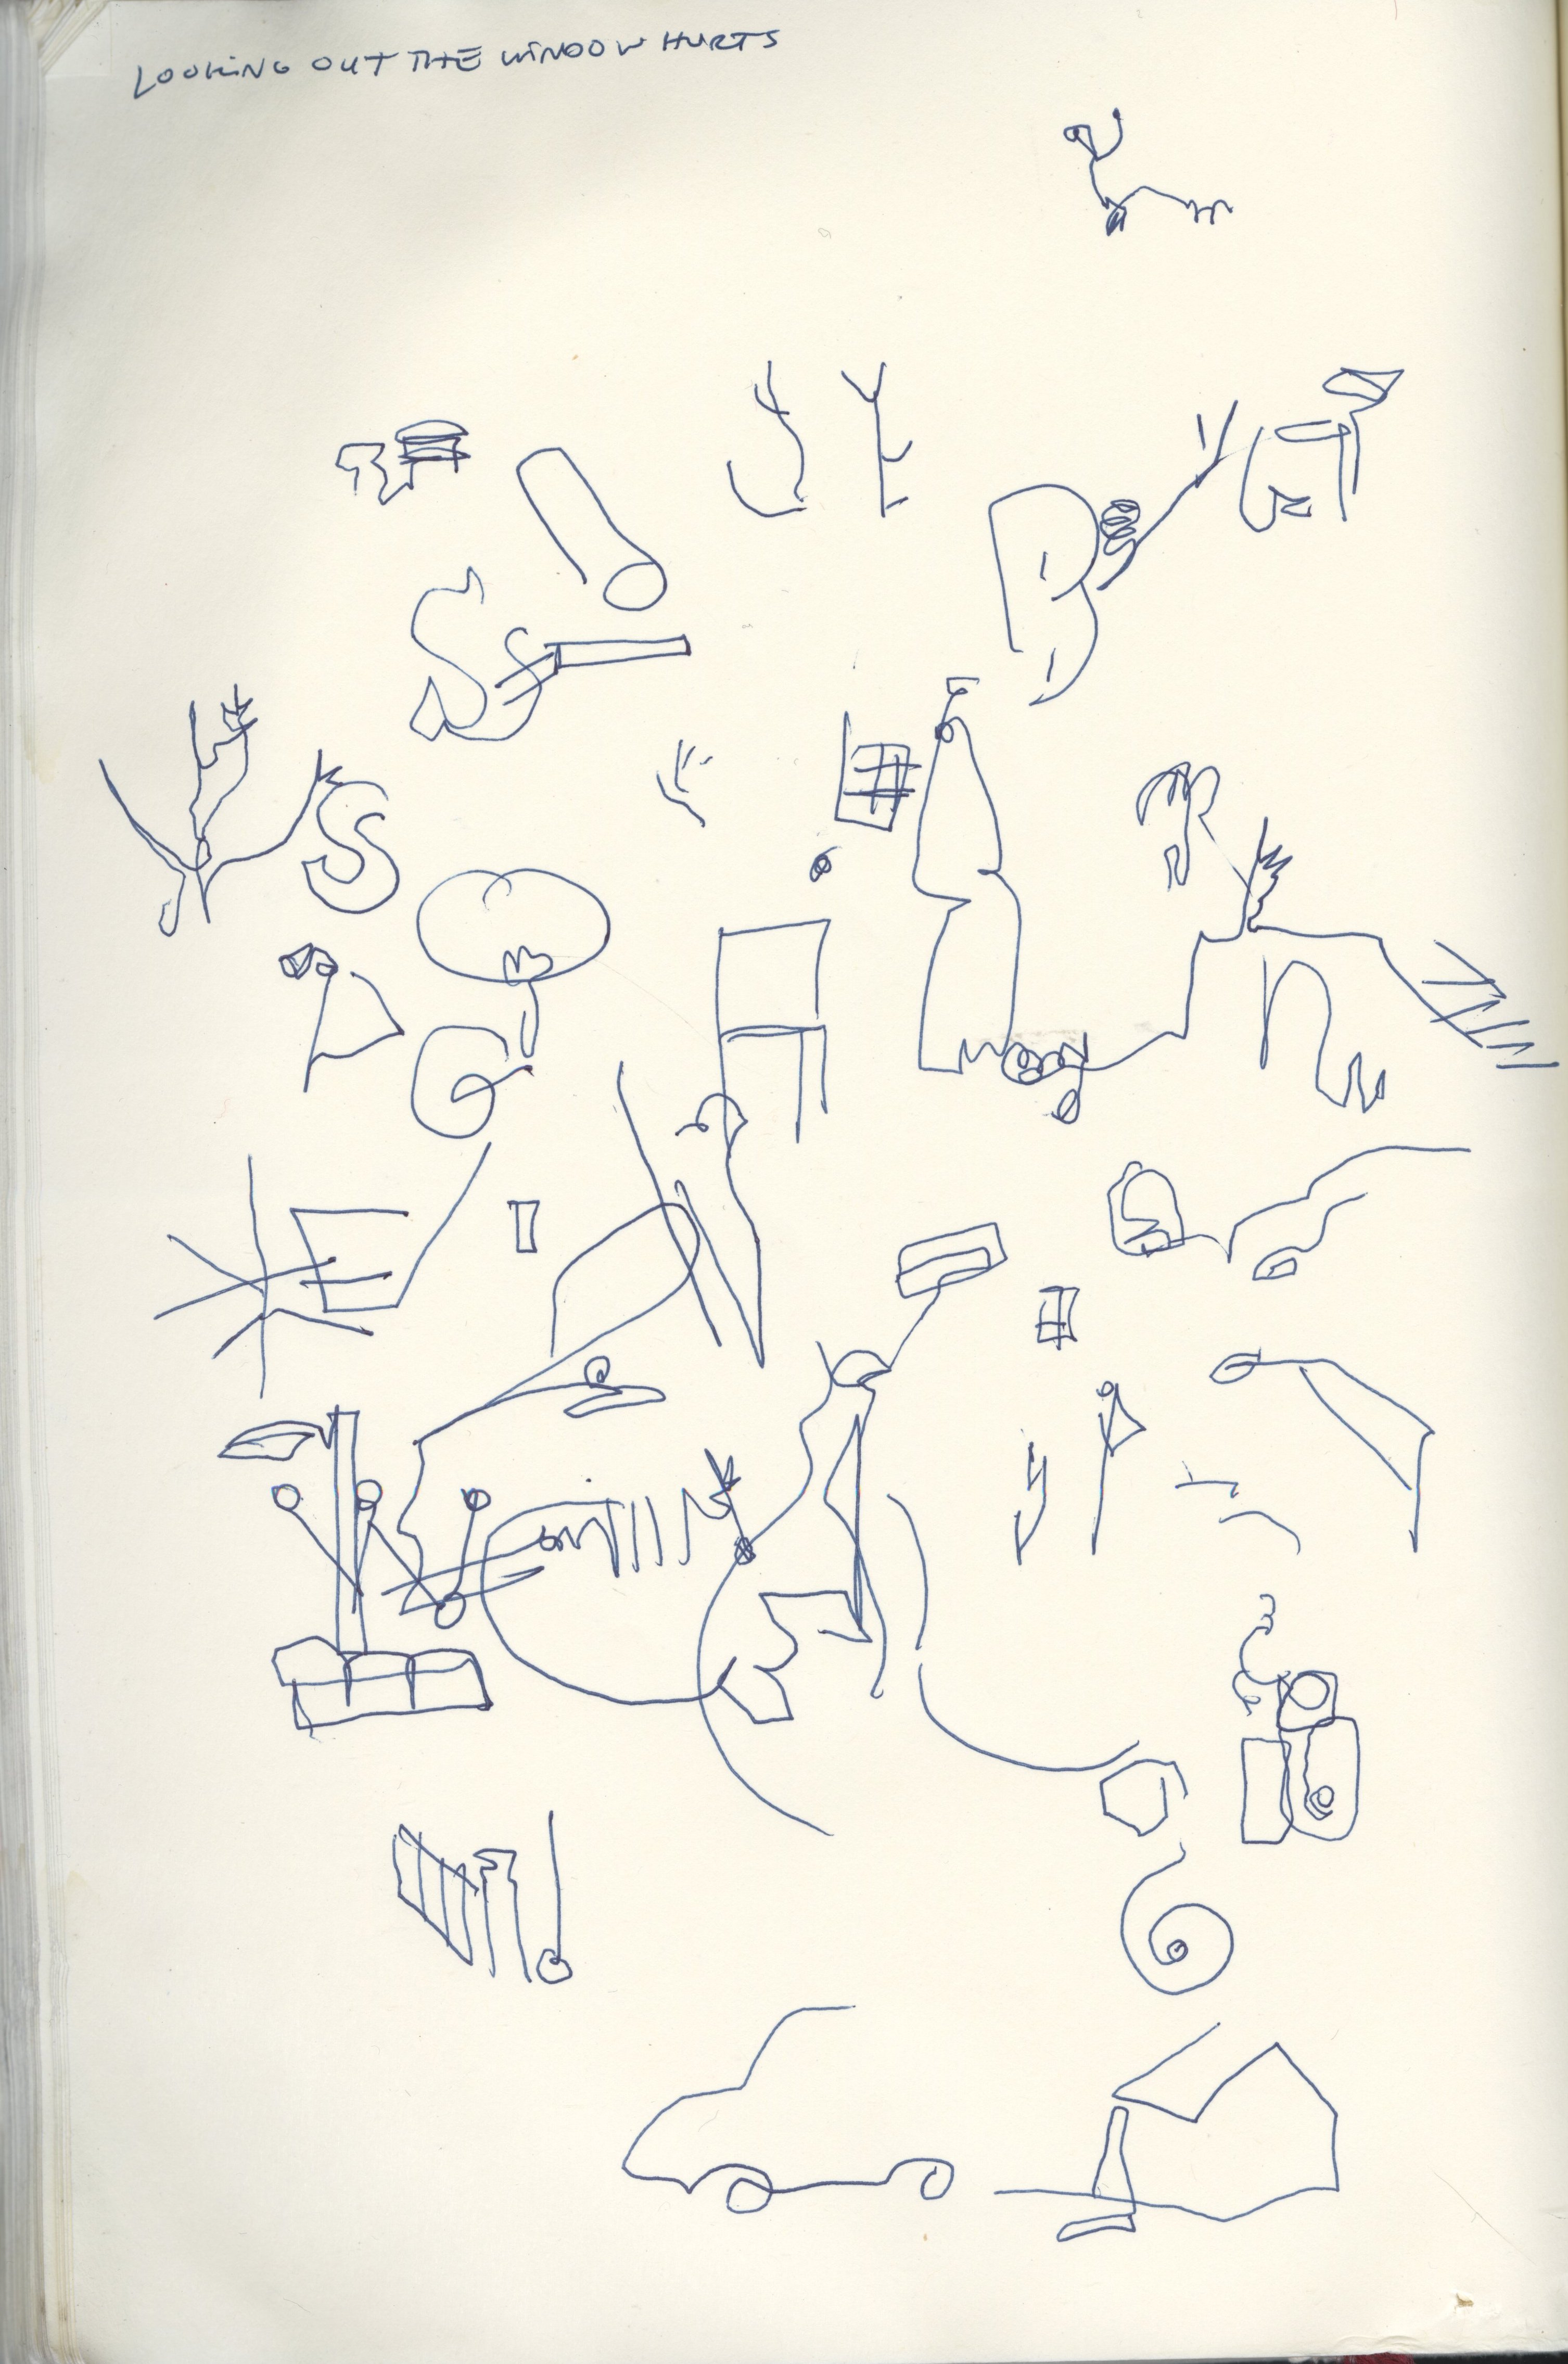 LOOKING OUT THE WINDOW HURTS